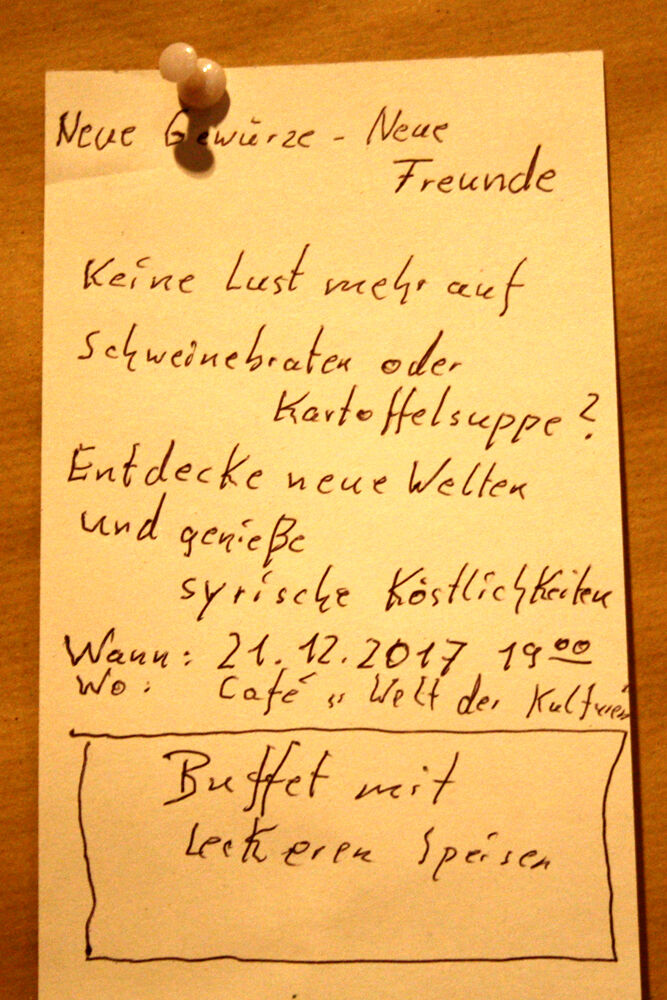 Neue Gewürze - Neue
Freunde
Keine Lust mehr auf
Schweinebraten oder
Kartoffelsuppe?
Entdecke neue Welten
und genieße
syrische Köstlichkeiten
Wann: 21.12.2017 19⁰⁰
Wo: Café „Welt der Kulturen
Buffet mit
leckeren Speisen